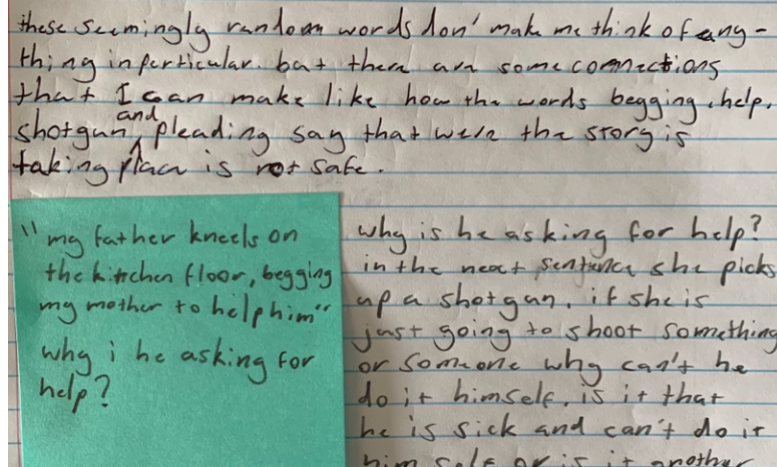 these seemingly random words don' make me think of any-
thing in perticular. but there are some connections
that I can make like how the words begging, help,
shotgun, and pleading say that were the story is
taking place is not safe.
"my father kneels on
the kitchen floor, begging
my mother to help him"
why i he asking for
help?
why is he asking for help?
in the next sentence she picks
up a shotgun. if she is
just going to shoot something
or someone why can't he
do it himself. is it that
he is sick and can't do it
him self or is it another